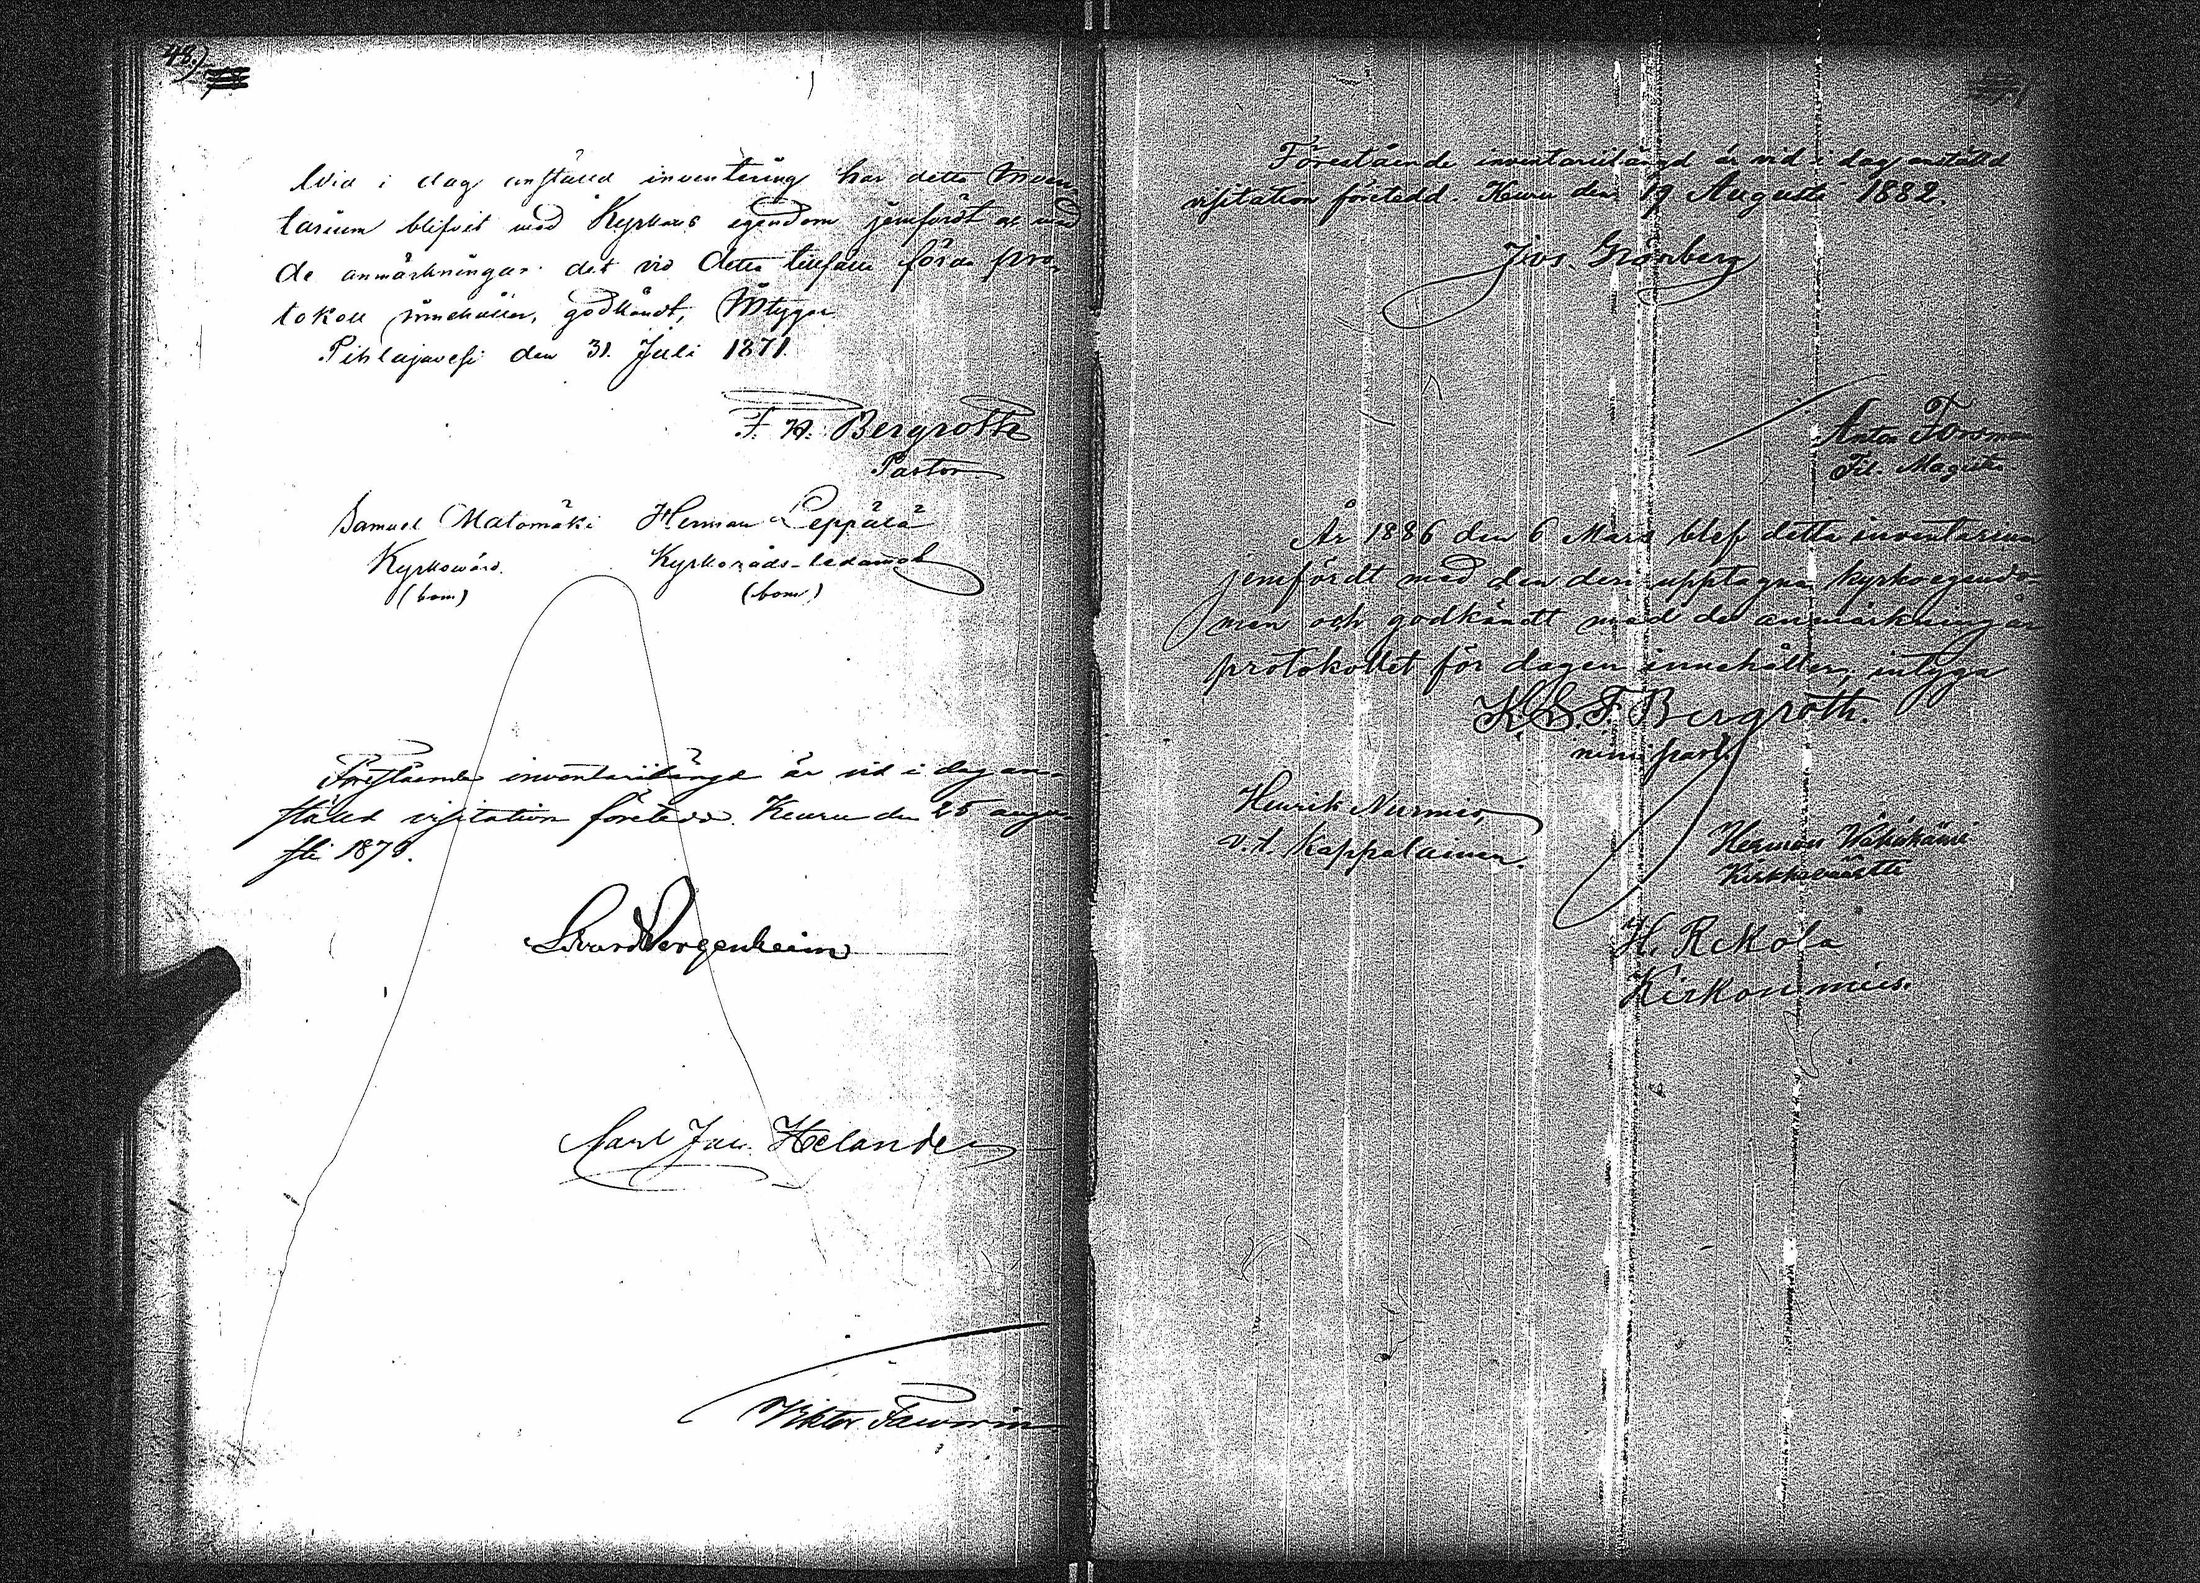 48.)
Wid i dag anstäld inventering har detta Inven-
tarium blifvit med Kyrkans egendom jemfördt och med
de anmärkningar det vid detta tillfälle förda pro-
tokoll innehåller, godkändt, Intyga
Pihlajavesi den 31. Juli 1871.
F. W. Bergroth
Pastor
Samuel Matomäki Herman Leppälä
Kyrkovärd. Kyrkoråds-ledamot
(bom.) (bom.)
Förestående inventariilängd är vid i dag an-
stäld visitation företedd. Keuru den 25 augu-
sti 1879.
Edvard Bergenheim
Carl Jac. Helander
Viktor Faworin
Förestående inventariilängd är vid i dag anställd
visitation företedd. Keuru den 19 Augusti 1882.
Joos. Grönberg
Anton Forsman
Fil. Magister
År 1886 den 6 Mars blef detta inventarium
jemfördt med den deri upptagna kyrkoegendo-
men och godkändt med de anmärkningar
protokollet för dagen innehåller, intyga
K. S. F. Bergroth.
Henrik Nurmio,
v.t. kappalainen.
Herman
H. Rekola
Kirkon mies.